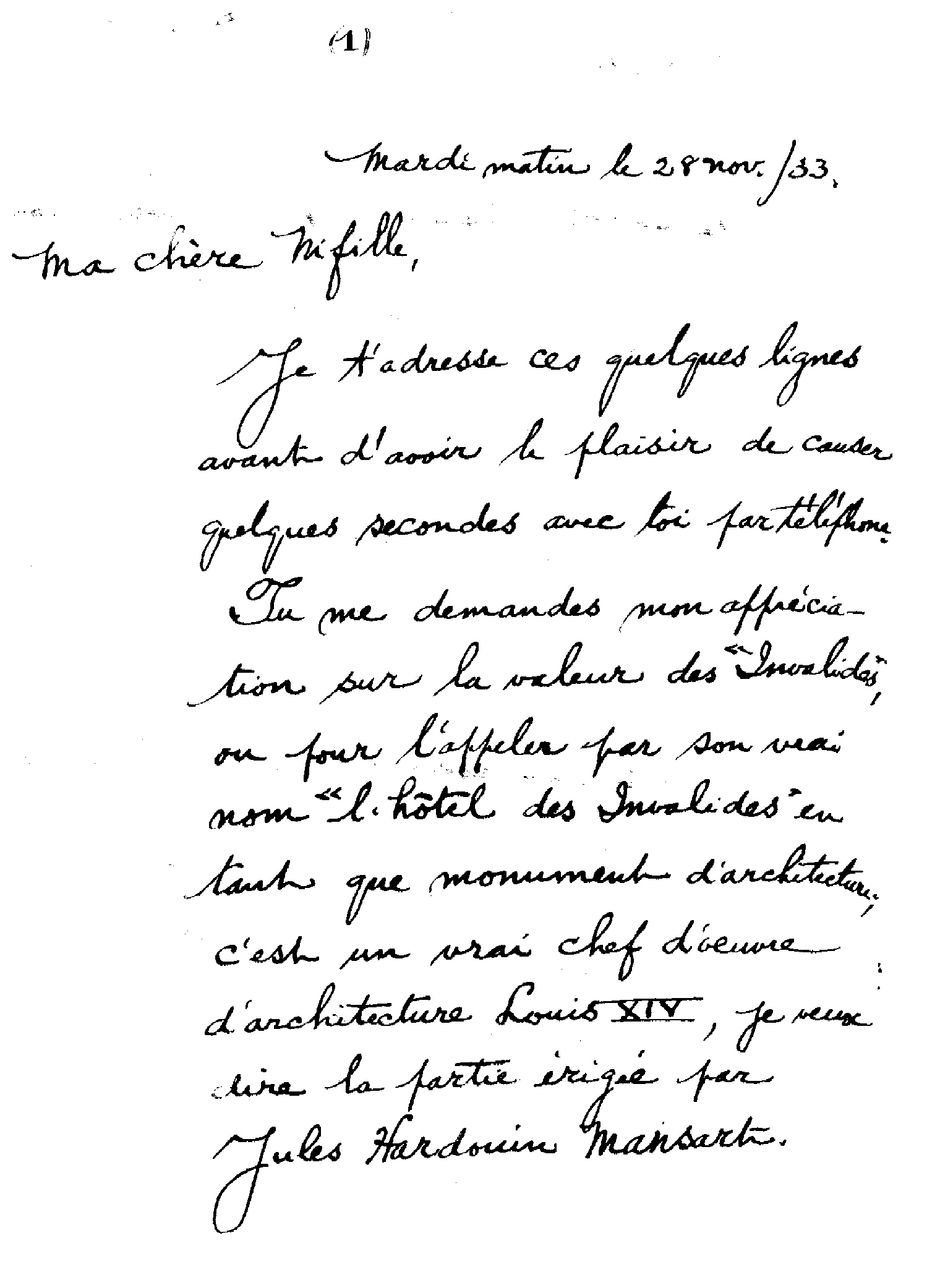 (1)
Mardi matin le 28 nov. /33.
Ma chère Nifille,
Je t'adresse ces quelques lignes
avant d'avoir le plaisir de causer
quelques secondes avec toi par téléphone.
Tu me demandes mon apprécia-
tion sur la valeur des "Invalides",
ou pour l'appeler par son vrai
nom "l'hôtel des Invalides" en
tant que monument d'architecture;
c'est un vrai chef d'œuvre
d'architecture Louis XIV, je veux
dire la partie érigée par
Jules Hardouin Mansart.